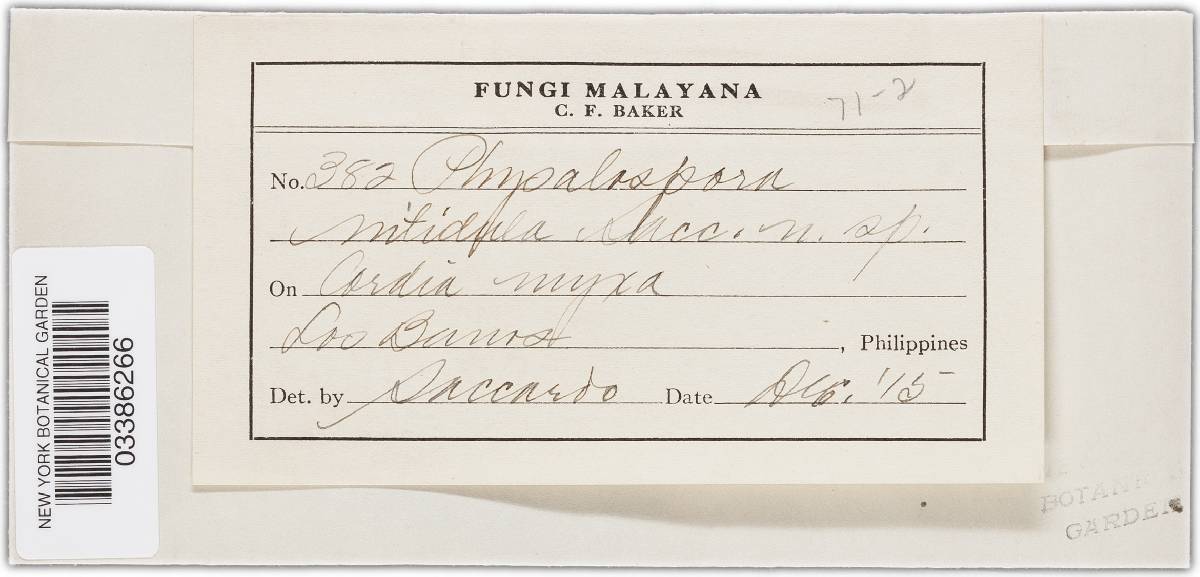 FUNGI MALAYANA
C. F. BAKER
71-2
No. 382 Physalospora
nitidula Sacc. n. sp.
On Cordia myxa
Los Banos, Philippines
Det. by Saccardo Date Dec. '15
NEW YORK BOTANICAL GARDEN
03386266
BOTAN
GARDEN